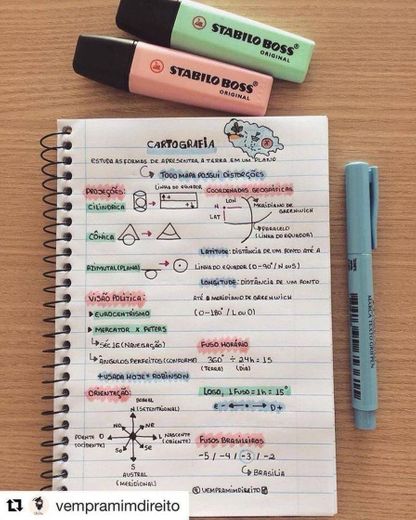 STABILO BOSS
ORIGINAL
STABILO BOSS
ORIGINAL
CARTOGRAFIA
ESTUDA AS FORMAS DE APRESENTAR A TERRA EM UM PLANO
TODO MAPA POSSUI DISTORÇÕES
PROJEÇÕES:
LINHA DO EQUADOR
COORDENADAS GEOGRÁFICAS
CILÍNDRICA
N
LON
LAT
MERIDIANO DE GREENWICH
PARALELO
(LINHA DO EQUADOR)
CÔNICA
LATITUDE: DISTÂNCIA DE UM PONTO ATÉ A
AZIMUTAL (PLANA)
LINHA DO EQUADOR (0-90°/N OU S)
LONGITUDE: DISTÂNCIA DE UM PONTO
VISÃO POLÍTICA:
ATÉ A MERIDIANO DE GREENWICH
EUROCENTRISMO
(0-180°/L OU O)
MERCATOR X PETERS
SÉC 16 (NAVEGAÇÃO)
FUSO HORÁRIO
ÂNGULOS PERFEITOS (CONFORME)
360° ÷ 24h = 15
(TERRA) (DIA)
+ USADA HOJE = ROBINSON
ORIENTAÇÃO:
LOGO, 1 FUSO = 1h = 15°
BOREAL
N (SETENTRIONAL)
E - D+
NO
NE
POENTE O
(OCIDENTE)
L NASCENTE
(ORIENTE)
FUSOS BRASILEIROS
SO
SE
-5 / -4 / -3 / -2
S
AUSTRAL
(MERIDIONAL)
BRASÍLIA
VEMPRAMIMDIREITO
MARCA TEXTO GRIFPEN
vempramimdireito